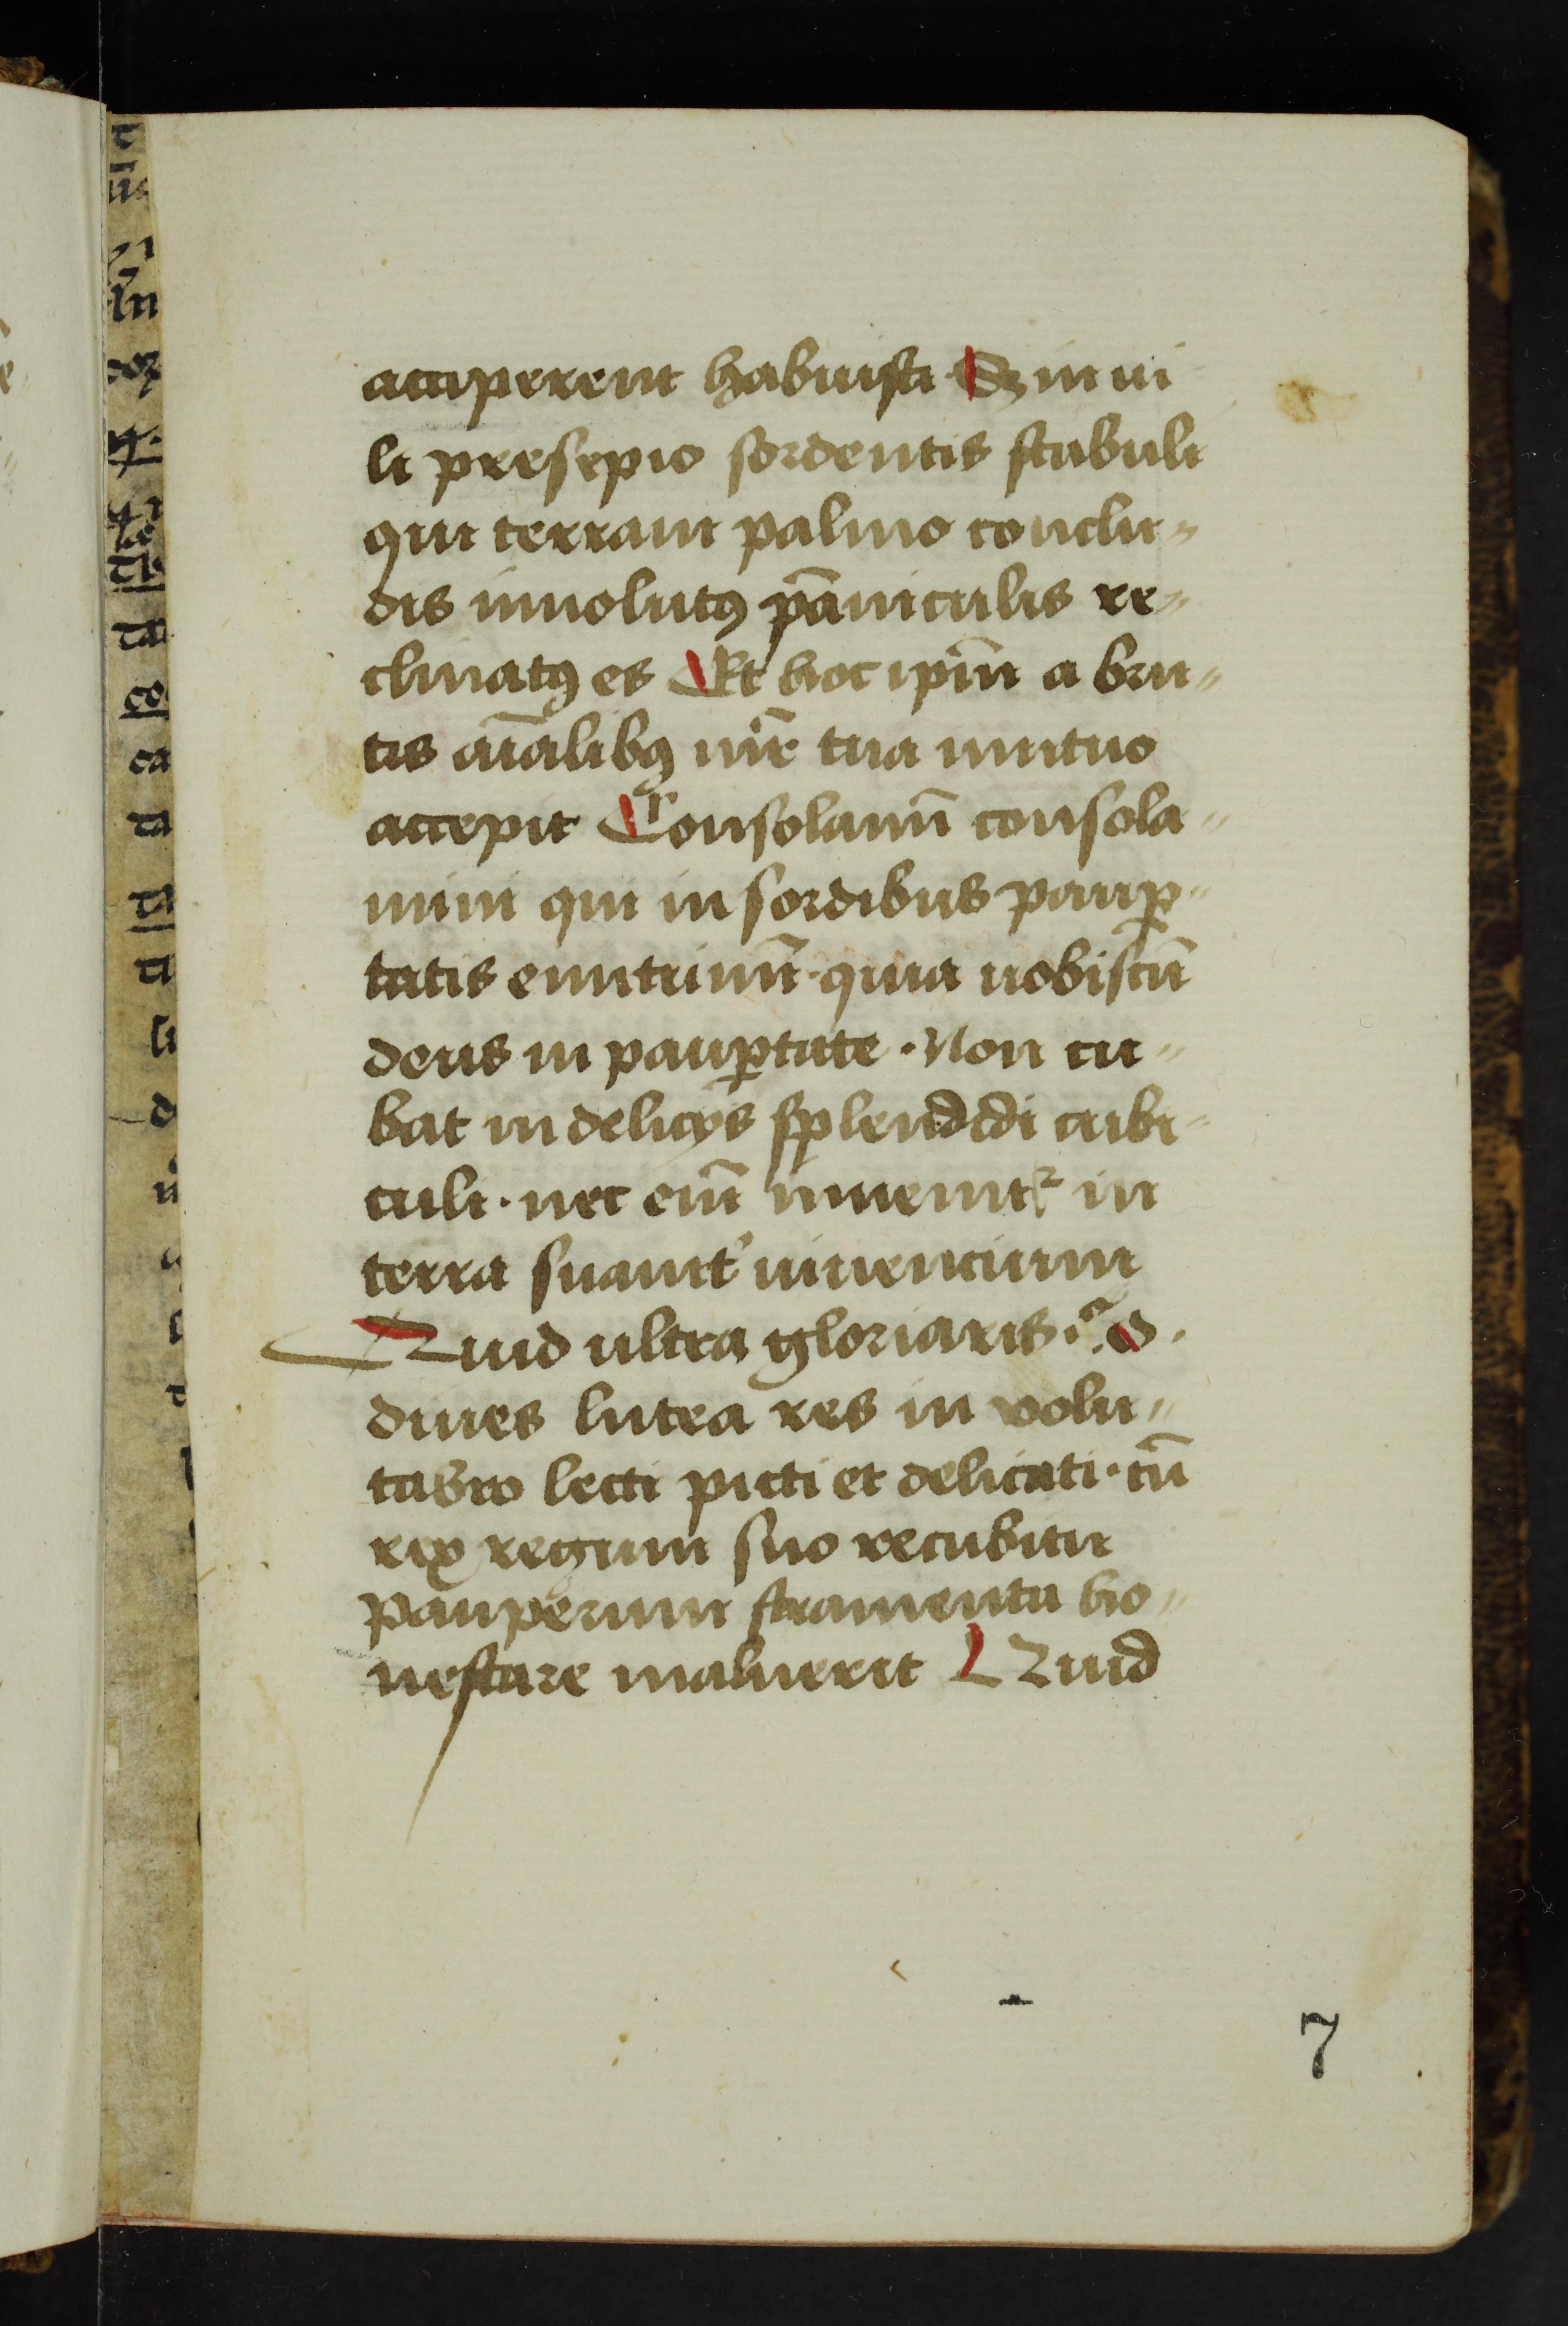 acciperent habuisti Sꝫ in ui
li presepio sordentis stabuli
qui terram palmo conclu〃
dis inuolutꝰ pāniculis re〃
clinatꝰ es Et hoc ipm̄ a bru〃
tis aīalibꝰ mr̄ tua mutuo
accepit Consolamī consola〃
mini qui in sordibus paup̱〃
tatis enutrimī · quia uobiscū
deus in paup̱tate · Non cu〃
bat in delicÿs splendidi cubi〃
culi · nec em̄ inuenitᷣ in
terra suauit᾽ uiuencium
Quid ultra gloriaris · o ·
diues lutea res in volu〃
tabro lecti picti et delicati · cū
rex regum suo recubitu
pauperum stramenta ho〃
nestare maluerit Quid
7